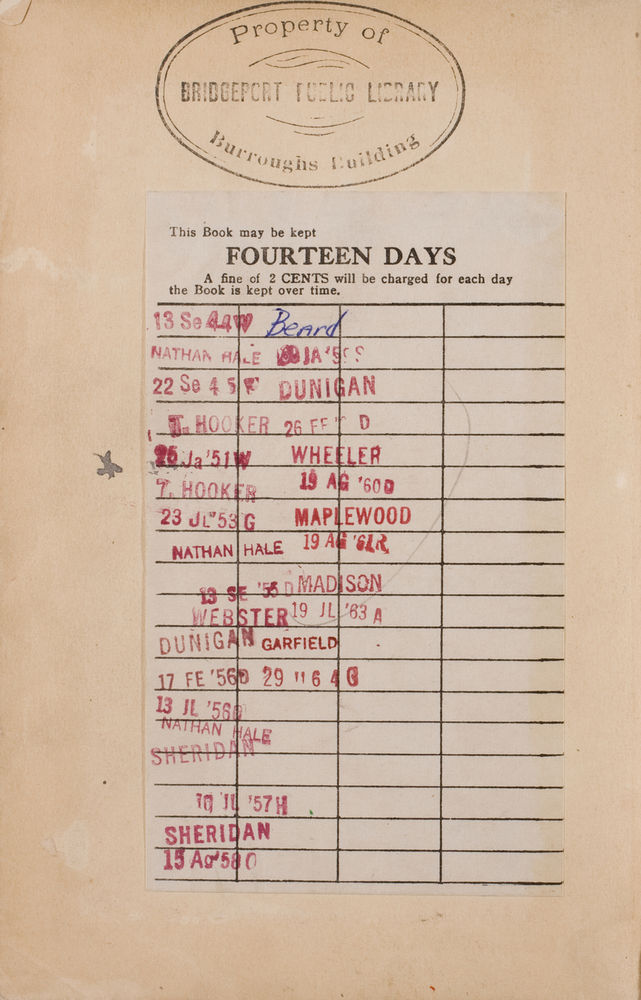 Property of
BRIDGEPORT PUBLIC LIBRARY
Burroughs Building
This Book may be kept
FOURTEEN DAYS
A fine of 2 CENTS will be charged for each day
the Book is kept over time.
13 Se 44W Beard
NATHAN HALE JA '5
22 Se 45 F DUNIGAN
T. HOOKER 26 FE D
25 Ja '51W WHEELER
T. HOOKER 19 AG '60D
23 JL '53G MAPLEWOOD
NATHAN HALE 19 AG '61R
13 SE '55 D MADISON
WEBSTER 19 JL '63 A
DUNIGAN GARFIELD
17 FE '56D 29 64G
13 JL '56
NATHAN HALE
SHERIDAN
JL '57H
SHERIDAN
15 Ag '58